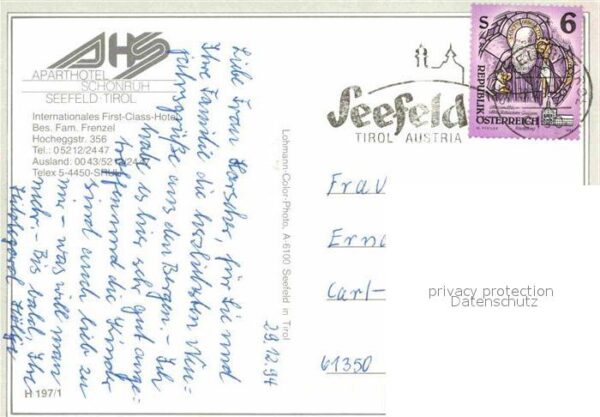 AHS
APARTHOTEL
SCHÖNRUH
SEEFELD TIROL
Internationales First-Class-Hotel
Bes. Fam. Frenzel
Hocheggstr. 356
Tel.: 05212/2447
Ausland: 0043/5212/24
Telex 5-4450-SRUH
Liebe Frau für Sie und
Ihre Familie die herzlichsten Neu-
jahrsgrüße aus den Bergen. - Ich
habe es hier sehr gut ange-
troffen und die Kinder
sind auch lieb zu
mir - was will man
mehr. - Bis bald, Ihre
29.12.94
H 197/1
Lohmann-Color-Photo, A-6100 Seefeld in Tirol
Seefeld
TIROL AUSTRIA
S 6
REPUBLIK
ÖSTERREICH
Frau
Erna
Carl-
61350
privacy protection
Datenschutz